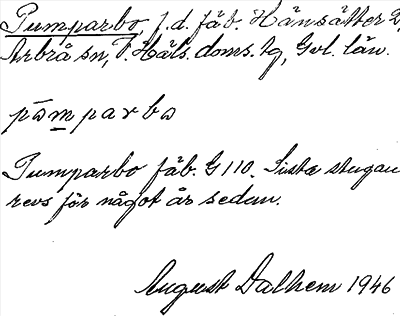 Pumparbo, f.d. fäb. Hänsätter 2,
Arbrå sn, V. Häls. doms. tg, Gvl. län.
pɷmparbɷ
Pumparbo fäb. G 110. Sista stugan
revs för något år sedan.
August Dalhem 1946